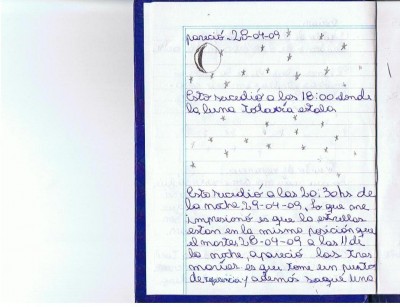 pareció. 28-04-09
Esto sucedió a las 18:00 donde
la luna todavía estaba
Esto sucedió a las 20:30hs de
la noche 29-04-09, Lo que me
impresionó es que la estrellas
estan en la misma posición que
el martes, 28-04-09 a las 11 de
la noche, apareció las tres
marias es que tome un punto
de referencia y ademas saque una